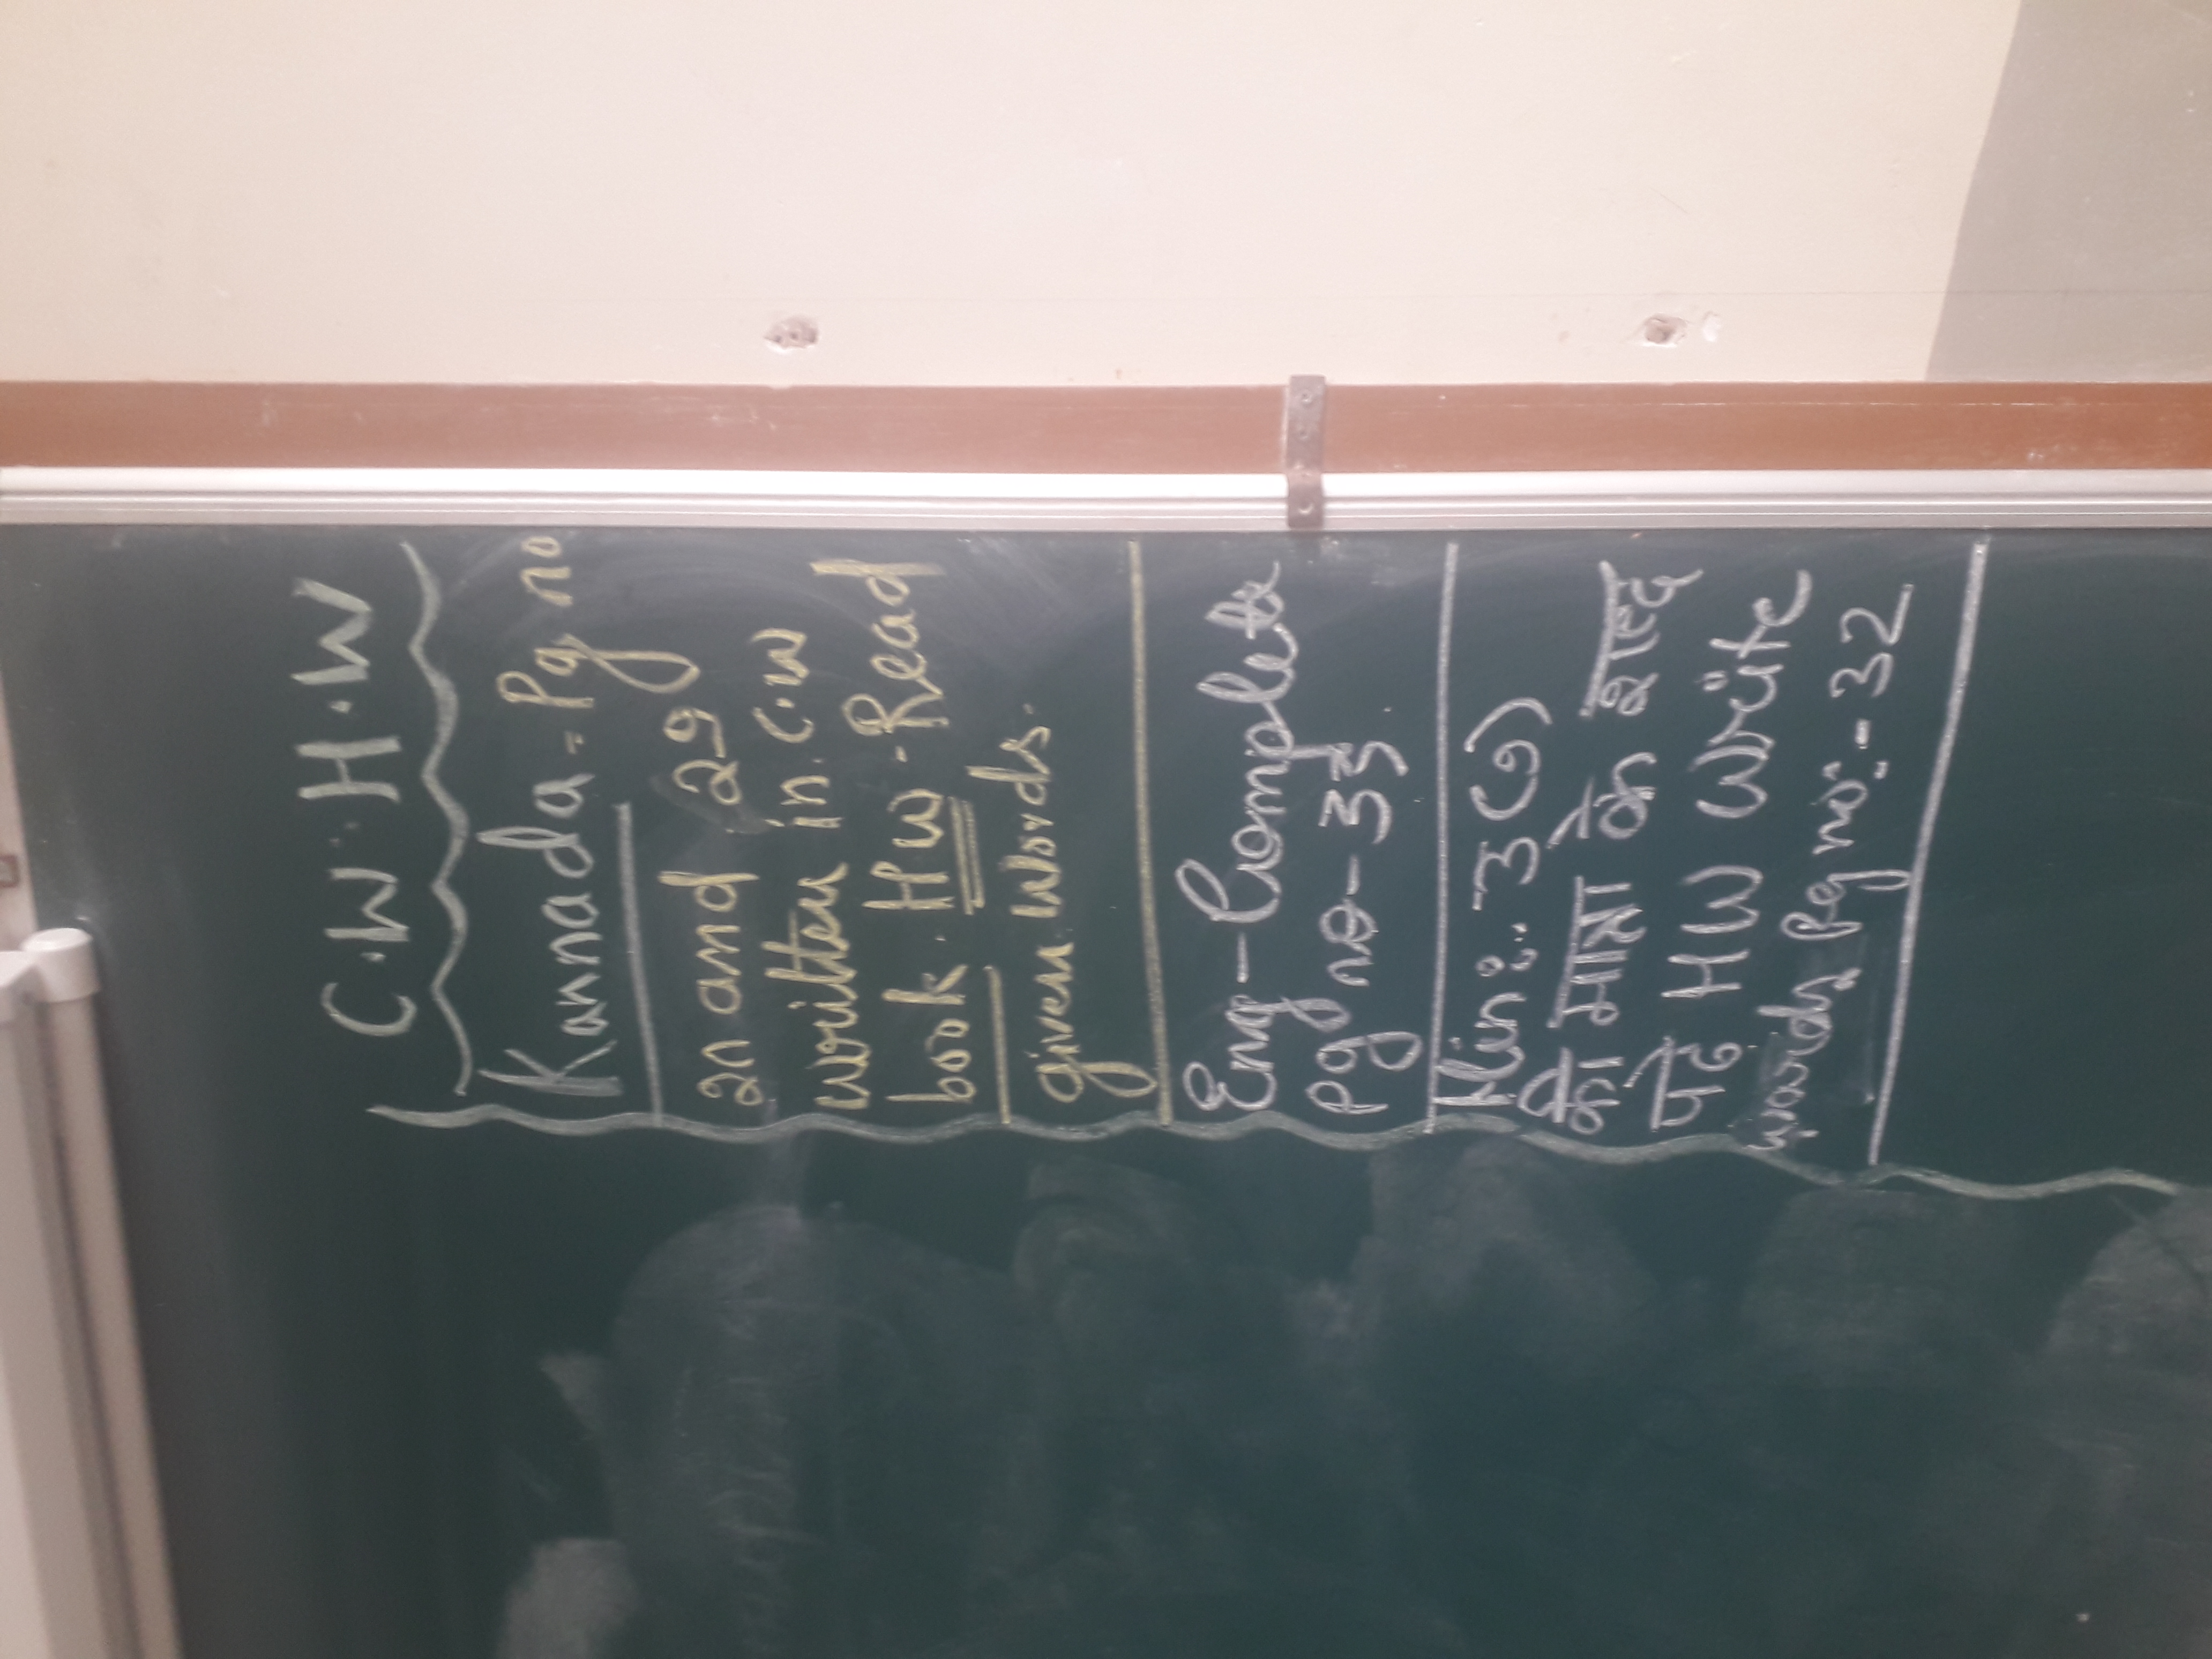 C.W. H.W
Kannada = Pg no
and 29
written in. C.W
book. HW - Read
given words.
Eng - Complete
Pg no - 35.
Hin :. उ (ु)
की मात्रा के शब्द
पढे HW write
words Pg no:- 32